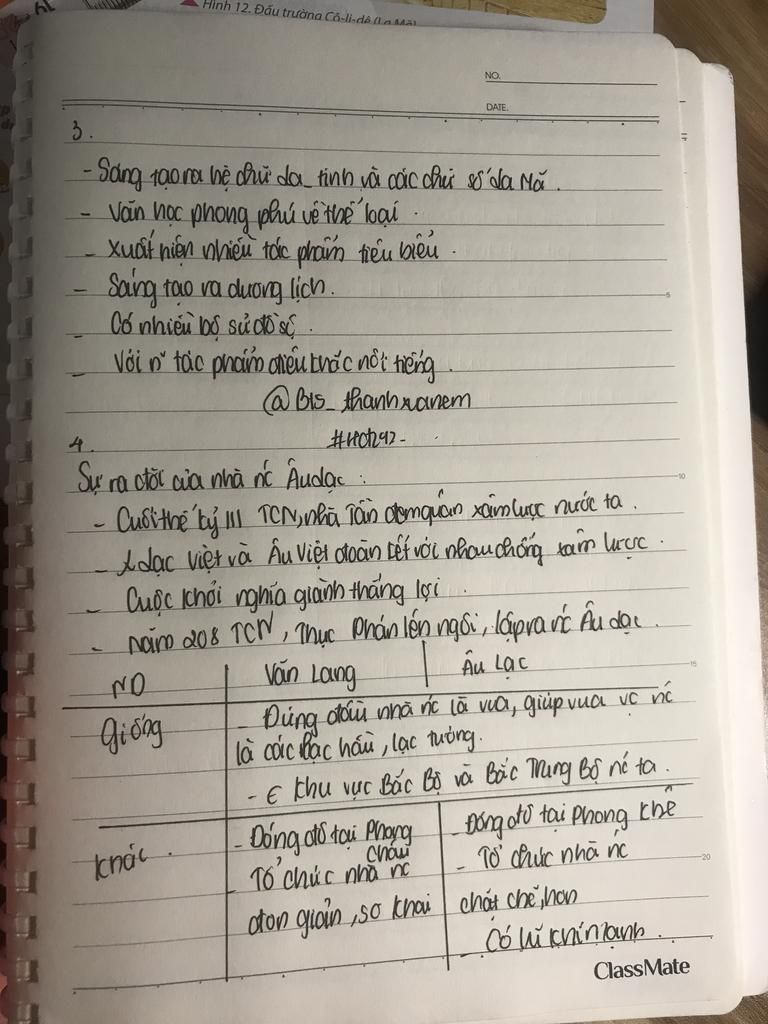 Hình 12. Đấu trường Cô-li-dê (La Mã)
NO.
DATE.
3.
- Sáng tạo ra hệ chữ da_tinh và các chữ số da Mã.
- Văn học phong phú về thể loại.
- xuất hiện nhiều tác phẩm tiêu biểu.
- Sáng tạo ra dương lịch.
- Có nhiều bộ sử đồ sộ.
- Với n~ tác phẩm điêu khắc nổi tiếng.
@Bts_thanhxanem
4.
Sự ra đời của nhà nc Âu dạc:
- Cuối thế kỷ III TCN, nhà Tần đem quân xâm lược nước ta.
- dạc Việt và Âu Việt đoàn kết với nhau chống xâm lược.
- Cuộc khởi nghĩa giành thắng lợi.
- Năm 208 TCN, Thục Phán lên ngôi, lập ra nc Âu dạc.
ND Văn Lang Âu Lạc
Giống - Đứng đầu nhà nc là vua, giúp vua vc nc
là các Lạc hầu, lạc tướng.
- E khu vực Bắc Bộ và Bắc Trung Bộ nc ta.
khác. - Đóng đô tại Phong Châu - Đóng đô tại Phong Khê
- Tổ chức nhà nc - Tổ chức nhà nc
đơn giản, sơ khai chặt chẽ, hơn
- Có vũ khí mạnh.
5
10
15
20
ClassMate